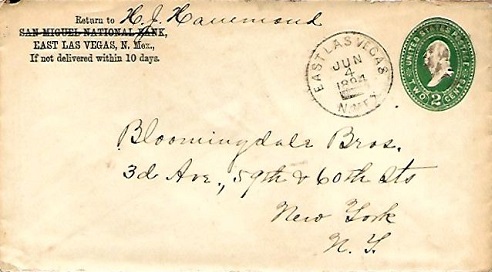 Return to H. J. Hammond
SAN MIGUEL NATIONAL BANK,
EAST LAS VEGAS, N. Mex.,
If not delivered within 10 days.
EAST LAS VEGAS
JUN
4
1894
N. MEX.
UNITED STATES POSTAGE
TWO 2 CENTS
Bloomingdale Bros.
3d Ave., 59th & 60th Sts
New York
N. Y.